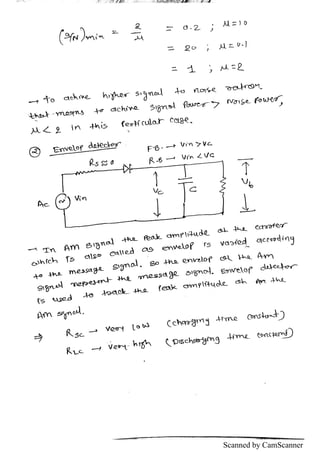 (S/N)min = 2/μ = 0.2 ; μ=10
= 20 ; μ=0.1
= 1 ; μ=2
→ To achive higher signal to noise ratio
that means to achive signal power > Noise power,
μ<2 in this particular case.
② Envelop detector
F·B· → Vin > Vc
R·B → Vin < Vc
Rs≈0
Ac Vin Vc C Vb
→ In AM signal the peak amplitude of the carrier
which is also called as envelop is varied according
to the message signal. So the envelop of the AM
signal represent the message signal. Envelop detector
is used to track the peak amplitude of the
Am signal.
⇒ RsC → very low (charging time constant)
RLC → very high (Discharging time constant)
Scanned by CamScanner